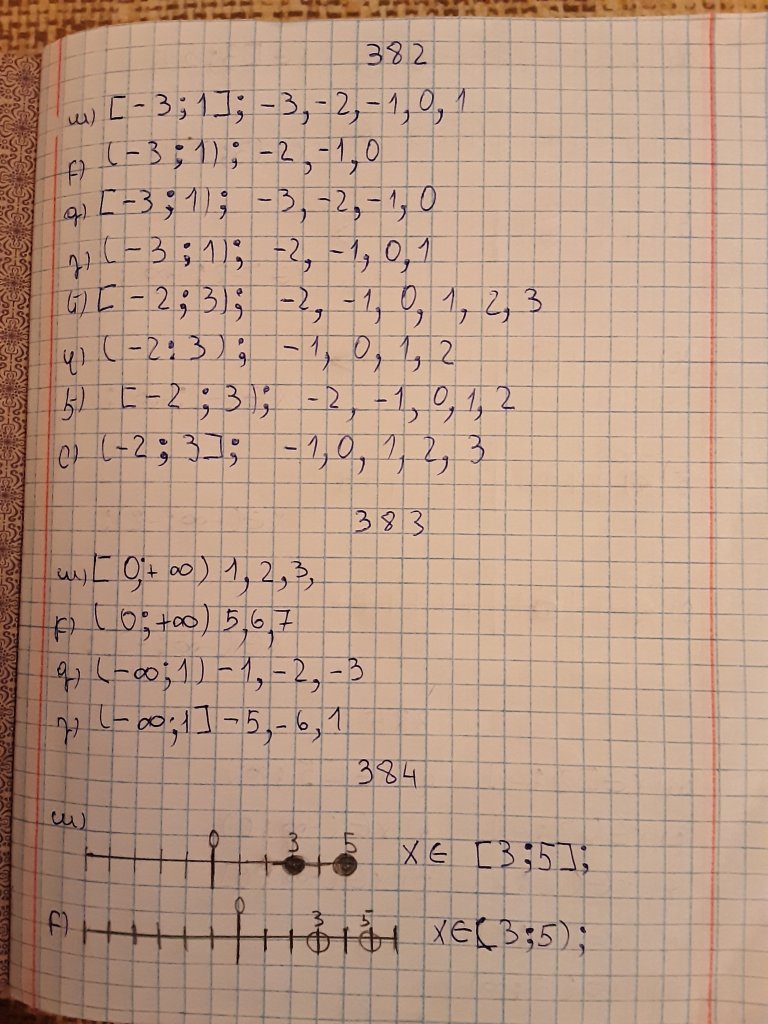 382
ա) [-3;1]; -3,-2,-1,0,1
բ) (-3;1); -2,-1,0
գ) [-3;1); -3,-2,-1,0
դ) (-3;1); -2,-1,0,1
ե) [-2;3); -2,-1,0,1,2,3
զ) (-2:3); -1,0,1,2
է) [-2;3); -2,-1,0,1,2
ը) (-2;3]; -1,0,1,2,3
383
ա) [0;+∞) 1,2,3,
բ) (0;+∞) 5,6,7
գ) (-∞;1) -1,-2,-3
դ) (-∞;1] -5,-6,1
384
ա)
0 3 5 x∈ [3;5];
բ) 0 3 5 x∈[3;5);